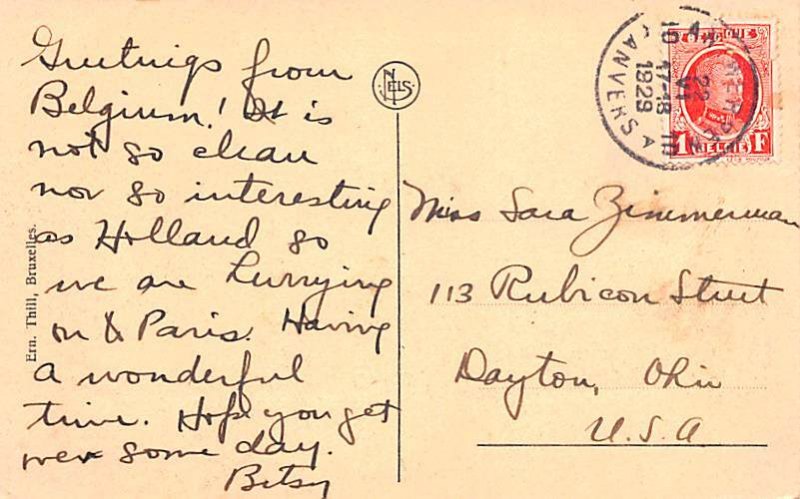 Greetings from
Belgium! It is
not so clean
nor so interesting
as Holland so
we are hurrying
on to Paris. Having
a wonderful
time. Hope you get
over some day.
Betsy
Ern. Thill, Bruxelles.
NELS
ANTWERPEN
22
VI
17-18
1929
ANVERS
1 BELGIE F
Miss Sara Zimmerman
113 Rubicon Street
Dayton, Ohio
U.S.A